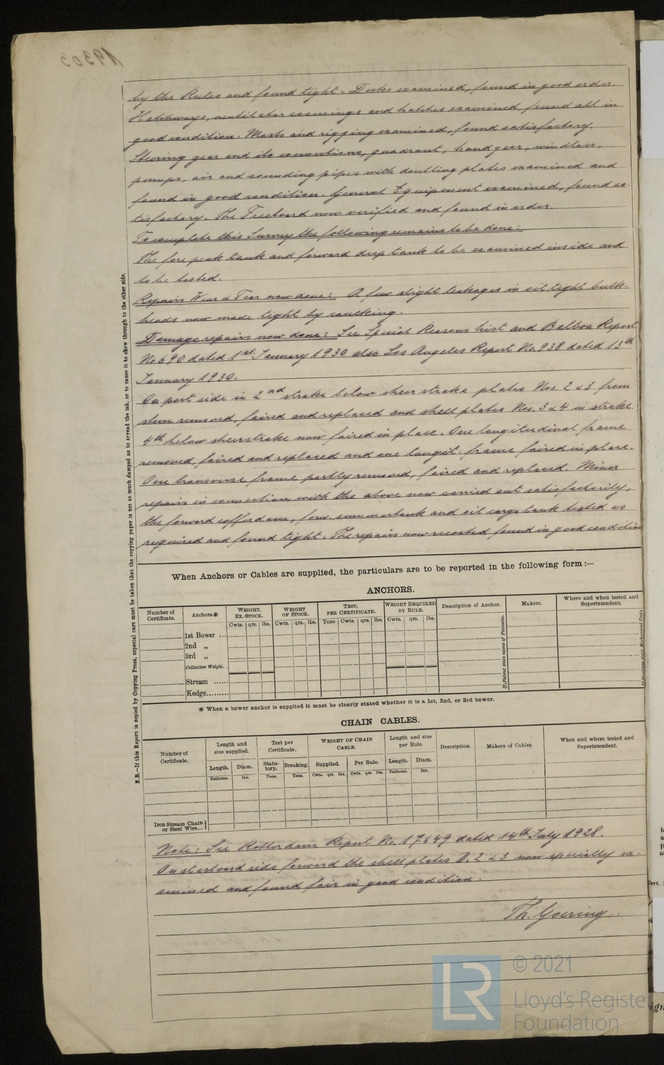 19303
by the Rules and found tight. Decks examined, found in good order.
Hatchways, ventilator coamings and hatches examined, found all in
good condition. Masts and rigging examined, found satisfactory.
Steering gear and its connections, quadrant, handgear, windlass,
pumps, air and sounding pipes with doubling plates examined and
found in good condition. General Equipment examined, found sa
tisfactory. The Freeboard now verified and found in order.
To complete this Survey the following remains to be done:
The fore peak tank and forward deep tank to be examined inside and
to be tested.
Repairs Wear & Tear now done: A few slight leakages in oil tight bulk-
heads now made tight by caulking.
Damage repairs now done: See Special Reasons list and Balboa Report
No. 690 dated 1st January 1930 also Los Angeles Report No. 938 dated 13th
January 1930.
On port side in 2nd strake below sheerstrake plates Nos. 2 & 3 from
stem removed, faired and replaced and shell plates Nos. 3 & 4 in strake
4th below sheerstrake now faired in place. One longitudinal frame
removed, faired and replaced and one longit. frame faired in place.
One transverse frame partly removed, faired and replaced. Minor
repairs in connection with the above now carried out satisfactorily,
the forward cofferdams, forw. summertank and oil cargo tank tested as
required and found tight. The repairs now recorded found in good condition
N.B.—If this Report is copied by Copying Press, especial care must be taken that the copying paper is not so much damped as to spread the ink, or to cause it to show through to the other side.
When Anchors or Cables are supplied, the particulars are to be reported in the following form:—
ANCHORS.
Number of Certificate. Anchors.* WEIGHT, EX. STOCK. WEIGHT OF STOCK. TEST, PER CERTIFICATE. WEIGHT REQUIRED BY RULE. Description of Anchor. Makers. Where and when tested and Superintendent.
Cwts. qrs. lbs. Cwts. qrs. lbs. Tons Cwts. qrs. lbs. Cwts. qrs. lbs.
1st Bower ...
2nd „
3rd „
Collective Weight.
Stream ......
Kedge........
* When a bower anchor is supplied it must be clearly stated whether it is a 1st, 2nd, or 3rd bower.
CHAIN CABLES.
Number of Certificate. Length and size supplied. Test per Certificate. WEIGHT OF CHAIN CABLE. Length and size per Rule. Description. Makers of Cables. When and where tested and Superintendent.
Length. Diam. Statutory. Breaking. Supplied. Per Rule. Length. Diam.
Fathoms. Ins. Tons. Tons. Cwts. qrs. lbs. Cwts. qrs. lbs. Fathoms. Ins.
Iron Stream Chain
or Steel Wire...
Note: See Rotterdam Report No. 17649 dated 14th July 1928.
On starboard side forward the shell plates D. 2 & 3 now specially ex-
amined and found fair in good condition.
Th. Goering.
LR © 2021
Lloyd's Registe
Foundation